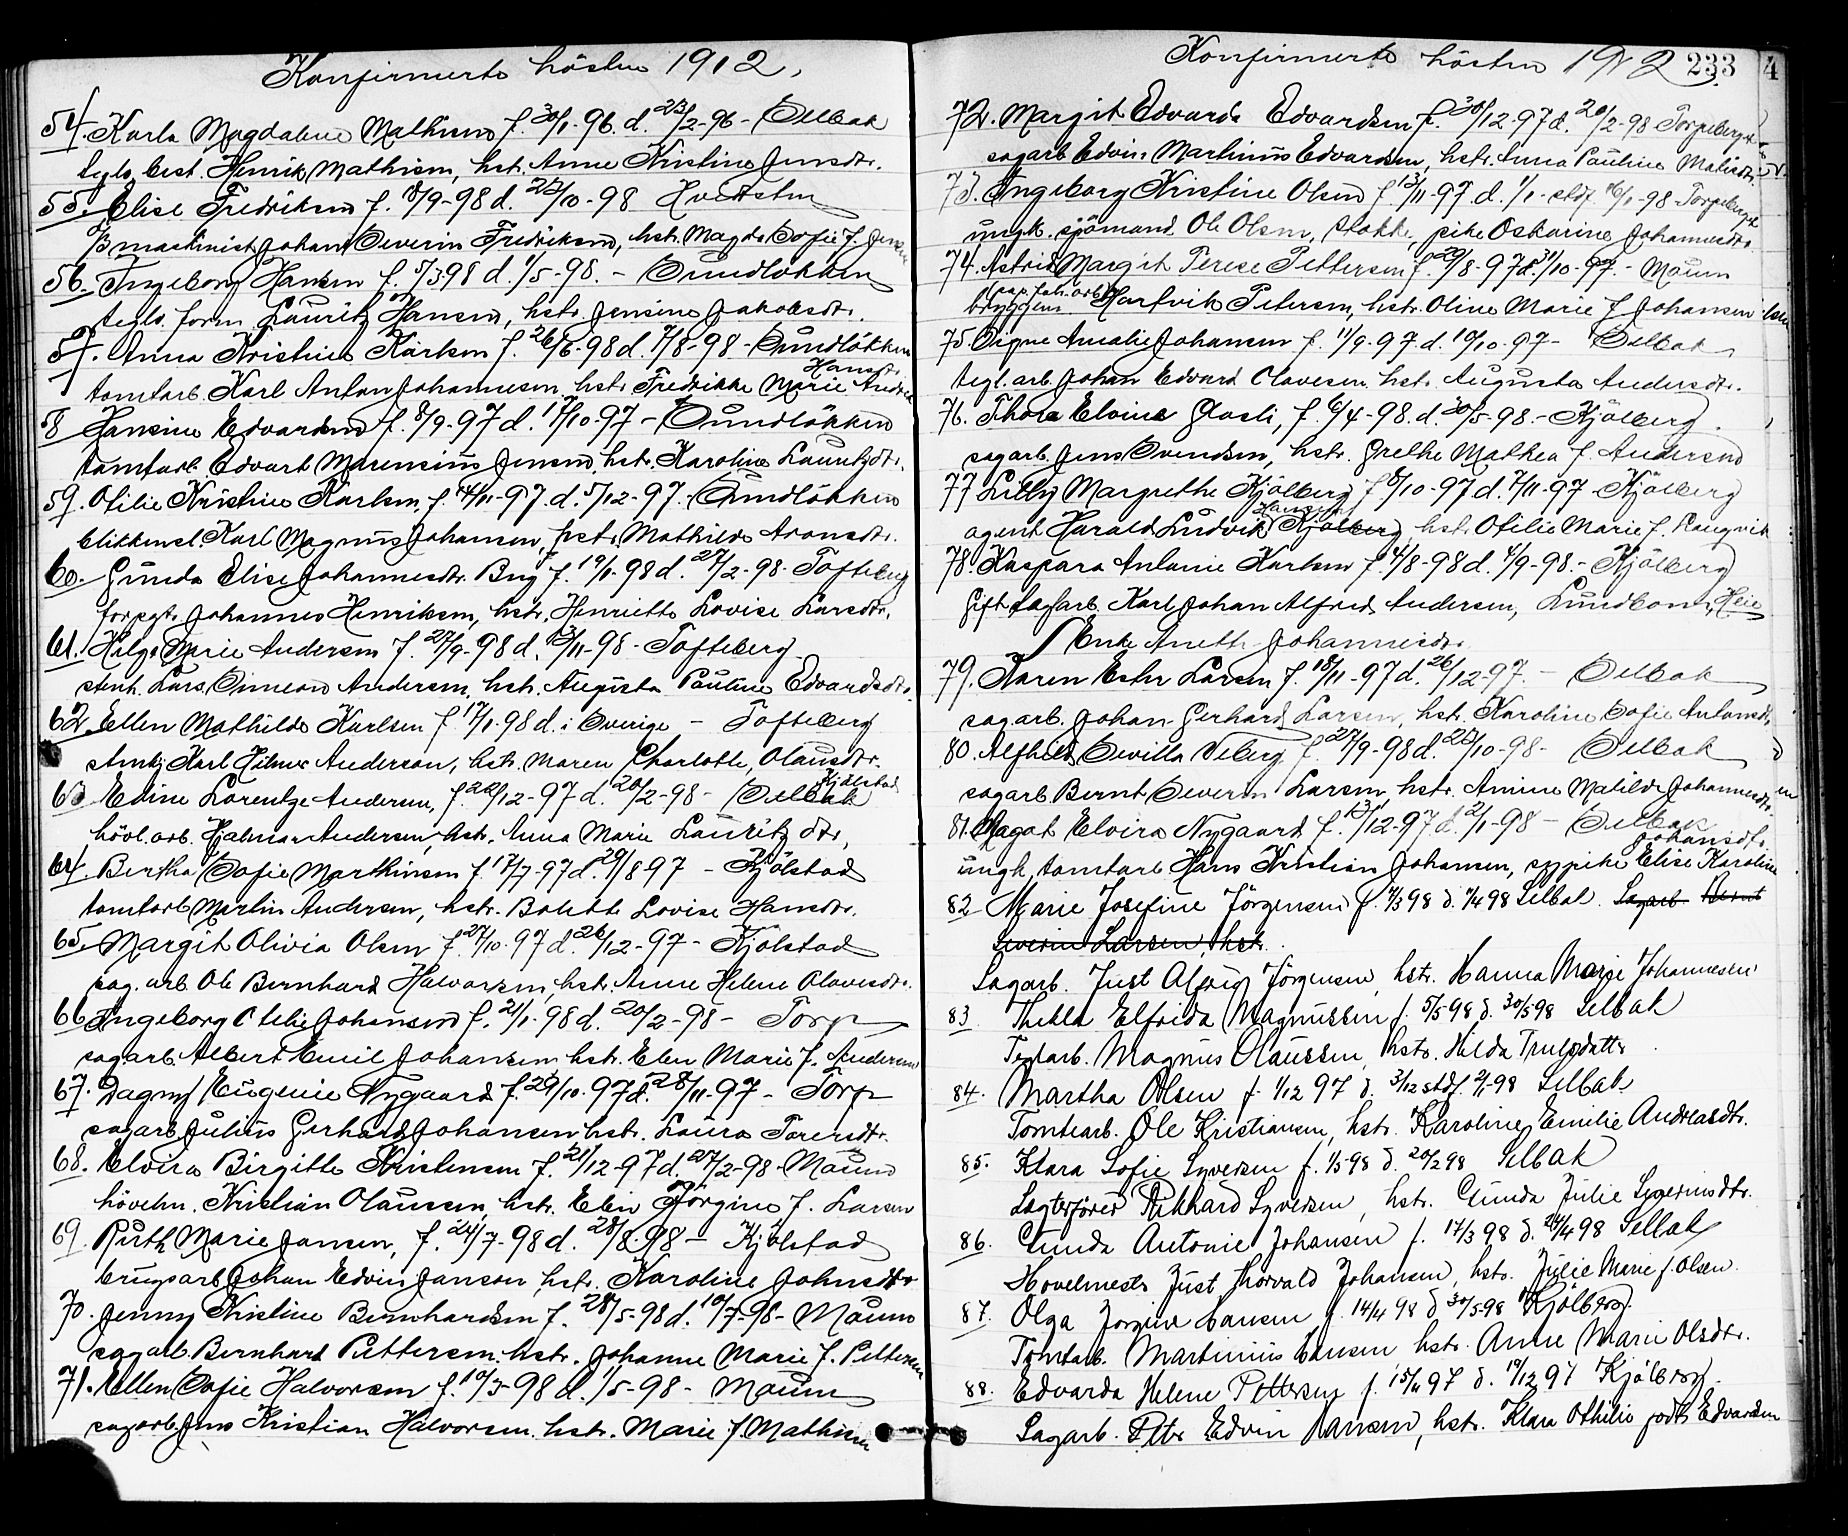 Konfirmerte hösten 1912.
54. Karla Magdalene Mathisen f. 30/1-96. d. 23/2-96 - Selbak
tegls. best. Henrik Mathisen, hstr. Anne Kristine Jensdtr.
55. Elise Fredriksen f. 8/9-98 d. 23/10-98
maskinist Johan Severin Fredriksen, hstr. Magda Sofie f. Jensen
56. Ingeborg Hansen f. 5/3 98 d. 1/5-98. - Sundlökken
tegls. form Lauritz Hansen, hstr. Jensine Jakobsdtr.
57. Anna Kristine Karlsen f. 26/6-98 d. 7/8-98 - Sundlökken
tomtarb. Karl Anton Johannesen, hstr. Fredrikke Marie Hansdtr.
58 Hansine Edvardsen f. 8/9-97 d. 17/10-97 - Sundlökken
tomtarb. Edvart Marensius Jensen, hstr. Karoline Lauritzdtr.
59. Otilie Kristine Karlsen f. 14/11-97. d. 5/12-97. - Sundlökken
blikkensl. Karl Magnus Johansen, hstr. Mathilde Aronsdtr.
60. Gunda Elise Johannesdtr. Bug f. 19/1-98 d. 27/2-98. Tofteberg
forpgt. Johannes Henriksen, hstr. Henriette Lovise Larsdtr.
61. Helga Marie Andersen f. 27/9-98 d. 13/11-98 - Tofteberg
stenh. Lars Simeon Andersen, hstr. Augusta Pauline Edvardsdtr.
62. Ellen Mathilde Karlsen f. 17/1-98 d. i Sverige - Tofteberg
Karl Hilmer Anderson, hstr. Maren Charlotte Olausdtr.
63 Edine Lorentze Andersen, f. 22/12-97 d. 20/2-98 - Selbak Kjölstad
hövl. arb. Hjalmar Andersen, hstr. Anna Marie Lauritzdtr,
64. Bertha Sofie Marthinsen f. 17/7-97 d. 29/8 97 - Kjölstad
tomtarb Martin Andersen, hstr. Bolette Lovise Hansdtr.
65. Margit Olivia Olsen f. 27/10-97 d. 26/12-97 - Kjölstad
sag. arb. Ole Bernhard Halvorsen, hstr. Anne Helene Olavesdtr.
66. Ingeborg Otelie Johansen f. 21/1-98 d. 20/2-98 - Torp
sagarb. Albert Emil Johansen hstr. Elen Marie f. Andersen
67. Dagny Eugenie Nygaard f. 29/10-97 d. 28/11-97 - Torp
sagarb. Julius Gerhard Johansen hstr. Laura Torersdtr.
68. Elvira Birgitte Kristensen f. 21/12-97 d. 27/2-98 - Maum
hövelm. Kristian Olaussen, hstr. Elen Jörgine f. Larsen
69. Ruth Marie Jansen, f. 24/7-98 d. 28/8-98 - Kjölstad
brugsarb. Johan Edvin Janson, hstr. Karoline Johnsdtr
70. Jenny Kristine Bernhardsen f. 28/5-98 d. 10/7-98 - Maum
sagarb. Bernhard Pettersen hstr. Johanne Marie f. Pettersen
71. Ellen Sofie Halvorsen f. 10/3-98 d. 1/5-98 - Maum
sagarb. Jens Kristian Halvorsen hstr. Marie f. Mathisen
Konfirmerte hösten 1912. 233
72. Margit Edvarda Edvardsen f. 30/12-97 d. 20/2-98 Torpeberget
sagarb Edvin Martinius Edvardsen, hstr. Anna Pauline
73. Ingeborg Kristine Olsen f. 13/11-97 d. 1/1- stdf. 16/1-98 - Torpeberget
ungk. sjömand Ole Olsen, Stokke, pike Oskarine Johannesdtr.
74. Astrid Margit Terese Pettersen f. 29/8-97 d. 31/10-97. - Maum
Hartvik Petersen, hstr. Oline Marie f. Johansen
75. Signe Amalie Johansen f. 11/9-97 d. 10/10-97 - Selbak
tegl. arb. Johan Edvard Olavesen hstr. Augusta Andersdtr.
76. Thora Elvine Glasli, f. 6/4-98. d. 30/5-98. - Kjölberg
sagarb. Jens Svendsen, hstr. Grethe Mathea f. Andersen
77 Lilly Margrethe Kjölberg f. 8/10-97 d. 7/11-97 Kjölberg
agent Harald Ludvik Hansen Kjölberg, hstr. Otilie Marie f. Rangvik
78. Kaspara Antonie Karlsen f. 4/8-98 d. 4/9-98. - Kjölberg
Gift sagarb. Karl Johan Alfred Andersen, Heie
Enke Anette Johannesdtr.
79. Karen Ester Larsen f. 18/11-97 d. 26/12-97. - Selbak
sagarb. Johan Gerhard Larsen, hstr. Karoline Sofie Antonsdtr.
80. Alfhild Sevilla Veberg f. 27/9-98 d. 23/10-98 - Selbak
sagarb Bernt Severin Larsen, hstr. Amine Matilde Johannesdtr.
81. Dagot Elvira Nygaard f. 13/12-97 d. 2/1-98 - Selbak
ungk. tomtarb Hans Kristian Johansen, pike Elise Karoline Johansdtr.
82 Marie Josefine Jörgensen f. 7/3 98 d. 11/4 98 Selbak. Sagarb Bernt
Severin Larsen, hst.
Sagarb. Just Alfred Jörgensen, hstr. Hanna Marie Johannesen
83 Thekla Elfrida Magnussen f. 5/5-98, d. 30/5 98 Selbak
Teglarb. Magnus Olaussen, hstr. Hilda Trulsdatter
84. Martha Olsen f. 1/12 97 d. 3/12 stdf. 2/1-98 Selbak
Tomtearb. Ole Kristiansen, hstr. Karoline Emilie Andreasdtr.
85. Klara Sofie Syversen f. 1/5-98 d. 20/2 98 Selbak
Lægterfører Rikhard Syversen, hstr. Gunda Julie Segerinsdtr.
86. Gunda Antonie Johansen f. 17/3 98 d. 24/4 98 Selbak
Hovelmester Just Thorvald Johansen, hstr. Julie Marie f. Olsen.
87. Olga Jorgine Hansen f. 14/4 98 d. 30/5-98 Kjölberg.
Tomtarb. Martinius Hansen hstr. Anne Marie Olsdtr.
88. Edvarda Helene Pettersen f. 15/11 97 d. 19/12 97 Kjölberg.
Sagarb. Petter Edvin Hansen, hstr. Klara Othilie født Edvardsen